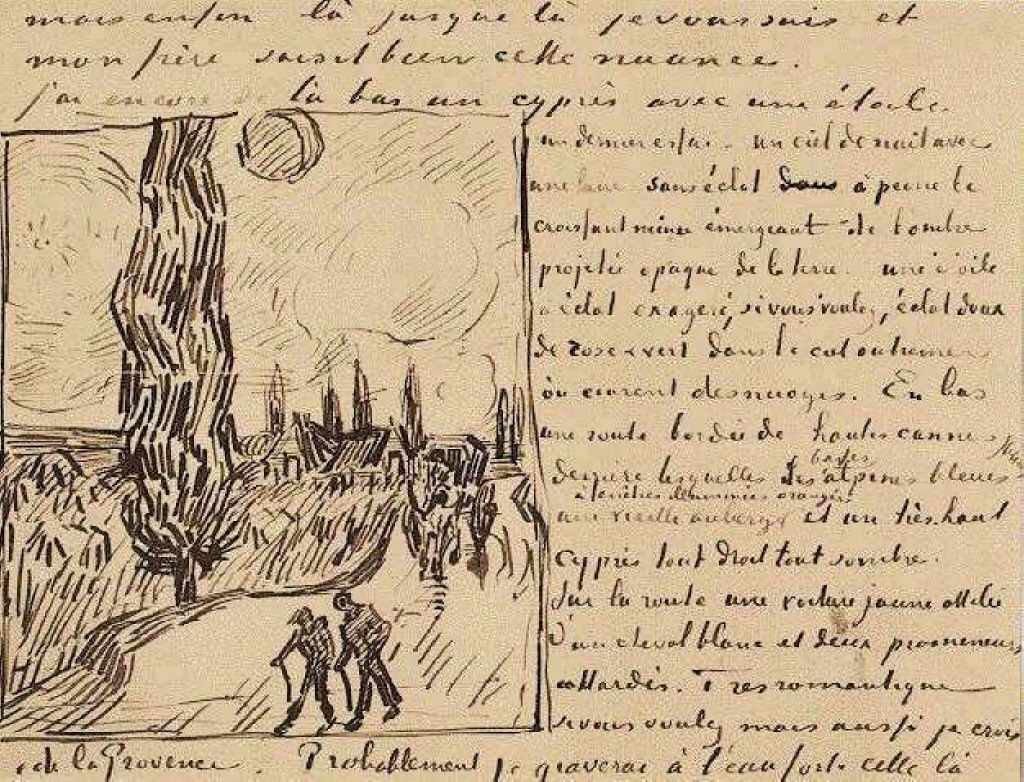 mais enfin là jusque là je vous suis et
mon frère saisit bien cette nuance.
j'ai encore de là bas un cyprès avec une étoile.
un dernier essai - un ciel de nuit avec
une lune sans éclat à peine le
croissant mince émergeant de l'ombre
projetée opaque de la terre. une étoile
à éclat exageré, si vous voulez, éclat doux
de rose & vert dans le ciel outremer
où courent des nuages. En bas
une route bordée de hautes cannes jaunes
derrière lesquelles les basses alpines bleues
une vieille auberge à fenêtres illuminées orangée et un très haut
cyprès tout droit tout sombre.
Sur la route une voiture jaune attelée
d'un cheval blanc et deux promeneurs
attardés. Très romantique
si vous voulez mais aussi je crois
de la Provence. Probablement je graverai à l'eau forte celle là